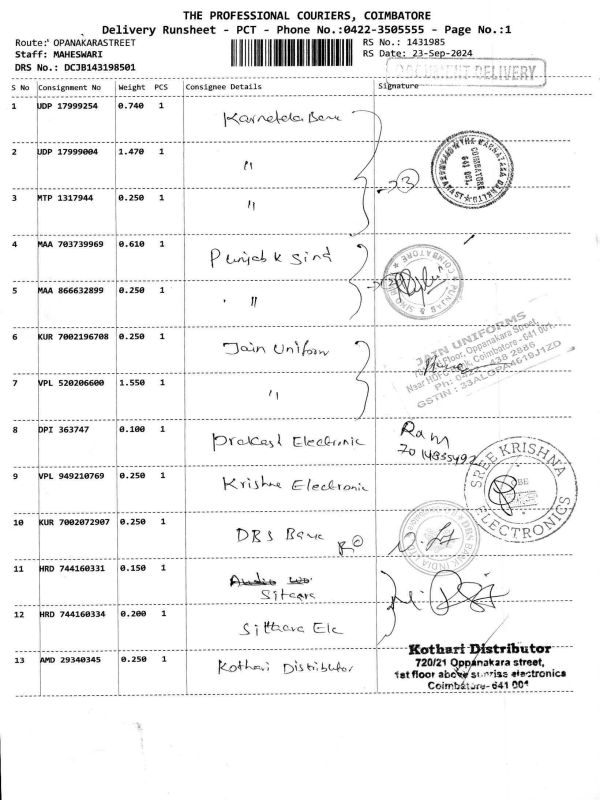 THE PROFESSIONAL COURIERS, COIMBATORE
Delivery Runsheet - PCT - Phone No.:0422-3505555 - Page No.:1
Route: OPANAKARASTREET
RS No.: 1431985
Staff: MAHESWARI
RS Date: 23-Sep-2024
DRS No.: DCJB143198501
DOCUMENT DELIVERY
S No Consignment No Weight PCS Consignee Details Signature
1 UDP 17999254 0.740 1
2 UDP 17999004 1.470 1 "
3 MTP 1317944 0.250 1 "
3
COIMBATORE
641 001.
4 MAA 703739969 0.610 1 Punjab & Sind
COIMBATORE
PUNJAB & SIND
5 MAA 866632899 0.250 1 "
6 KUR 7002196708 0.250 1 Jain Uniform
JAIN UNIFORMS
Floor, Oppanakara Street,
Near HDFC Bank, Coimbatore - 641 001.
GSTIN : 33ALGPA4619J1ZD
7 VPL 520206600 1.550 1 "
8 DPI 363747 0.100 1 Prakash Electronic
Ram
9 VPL 949210769 0.250 1 Krishna Electronic
SREE KRISHNA
ELECTRONICS
10 KUR 7002072907 0.250 1 DBS Bank
BANK INDIA LTD
11 HRD 744160331 0.150 1 Sitara
12 HRD 744160334 0.200 1 Sitthara Ele
13 AMD 29340345 0.250 1 Kothari Distributor
Kothari Distributor
720/21 Oppanakara street,
1st floor above sunrise electronics
Coimbatore- 641 001